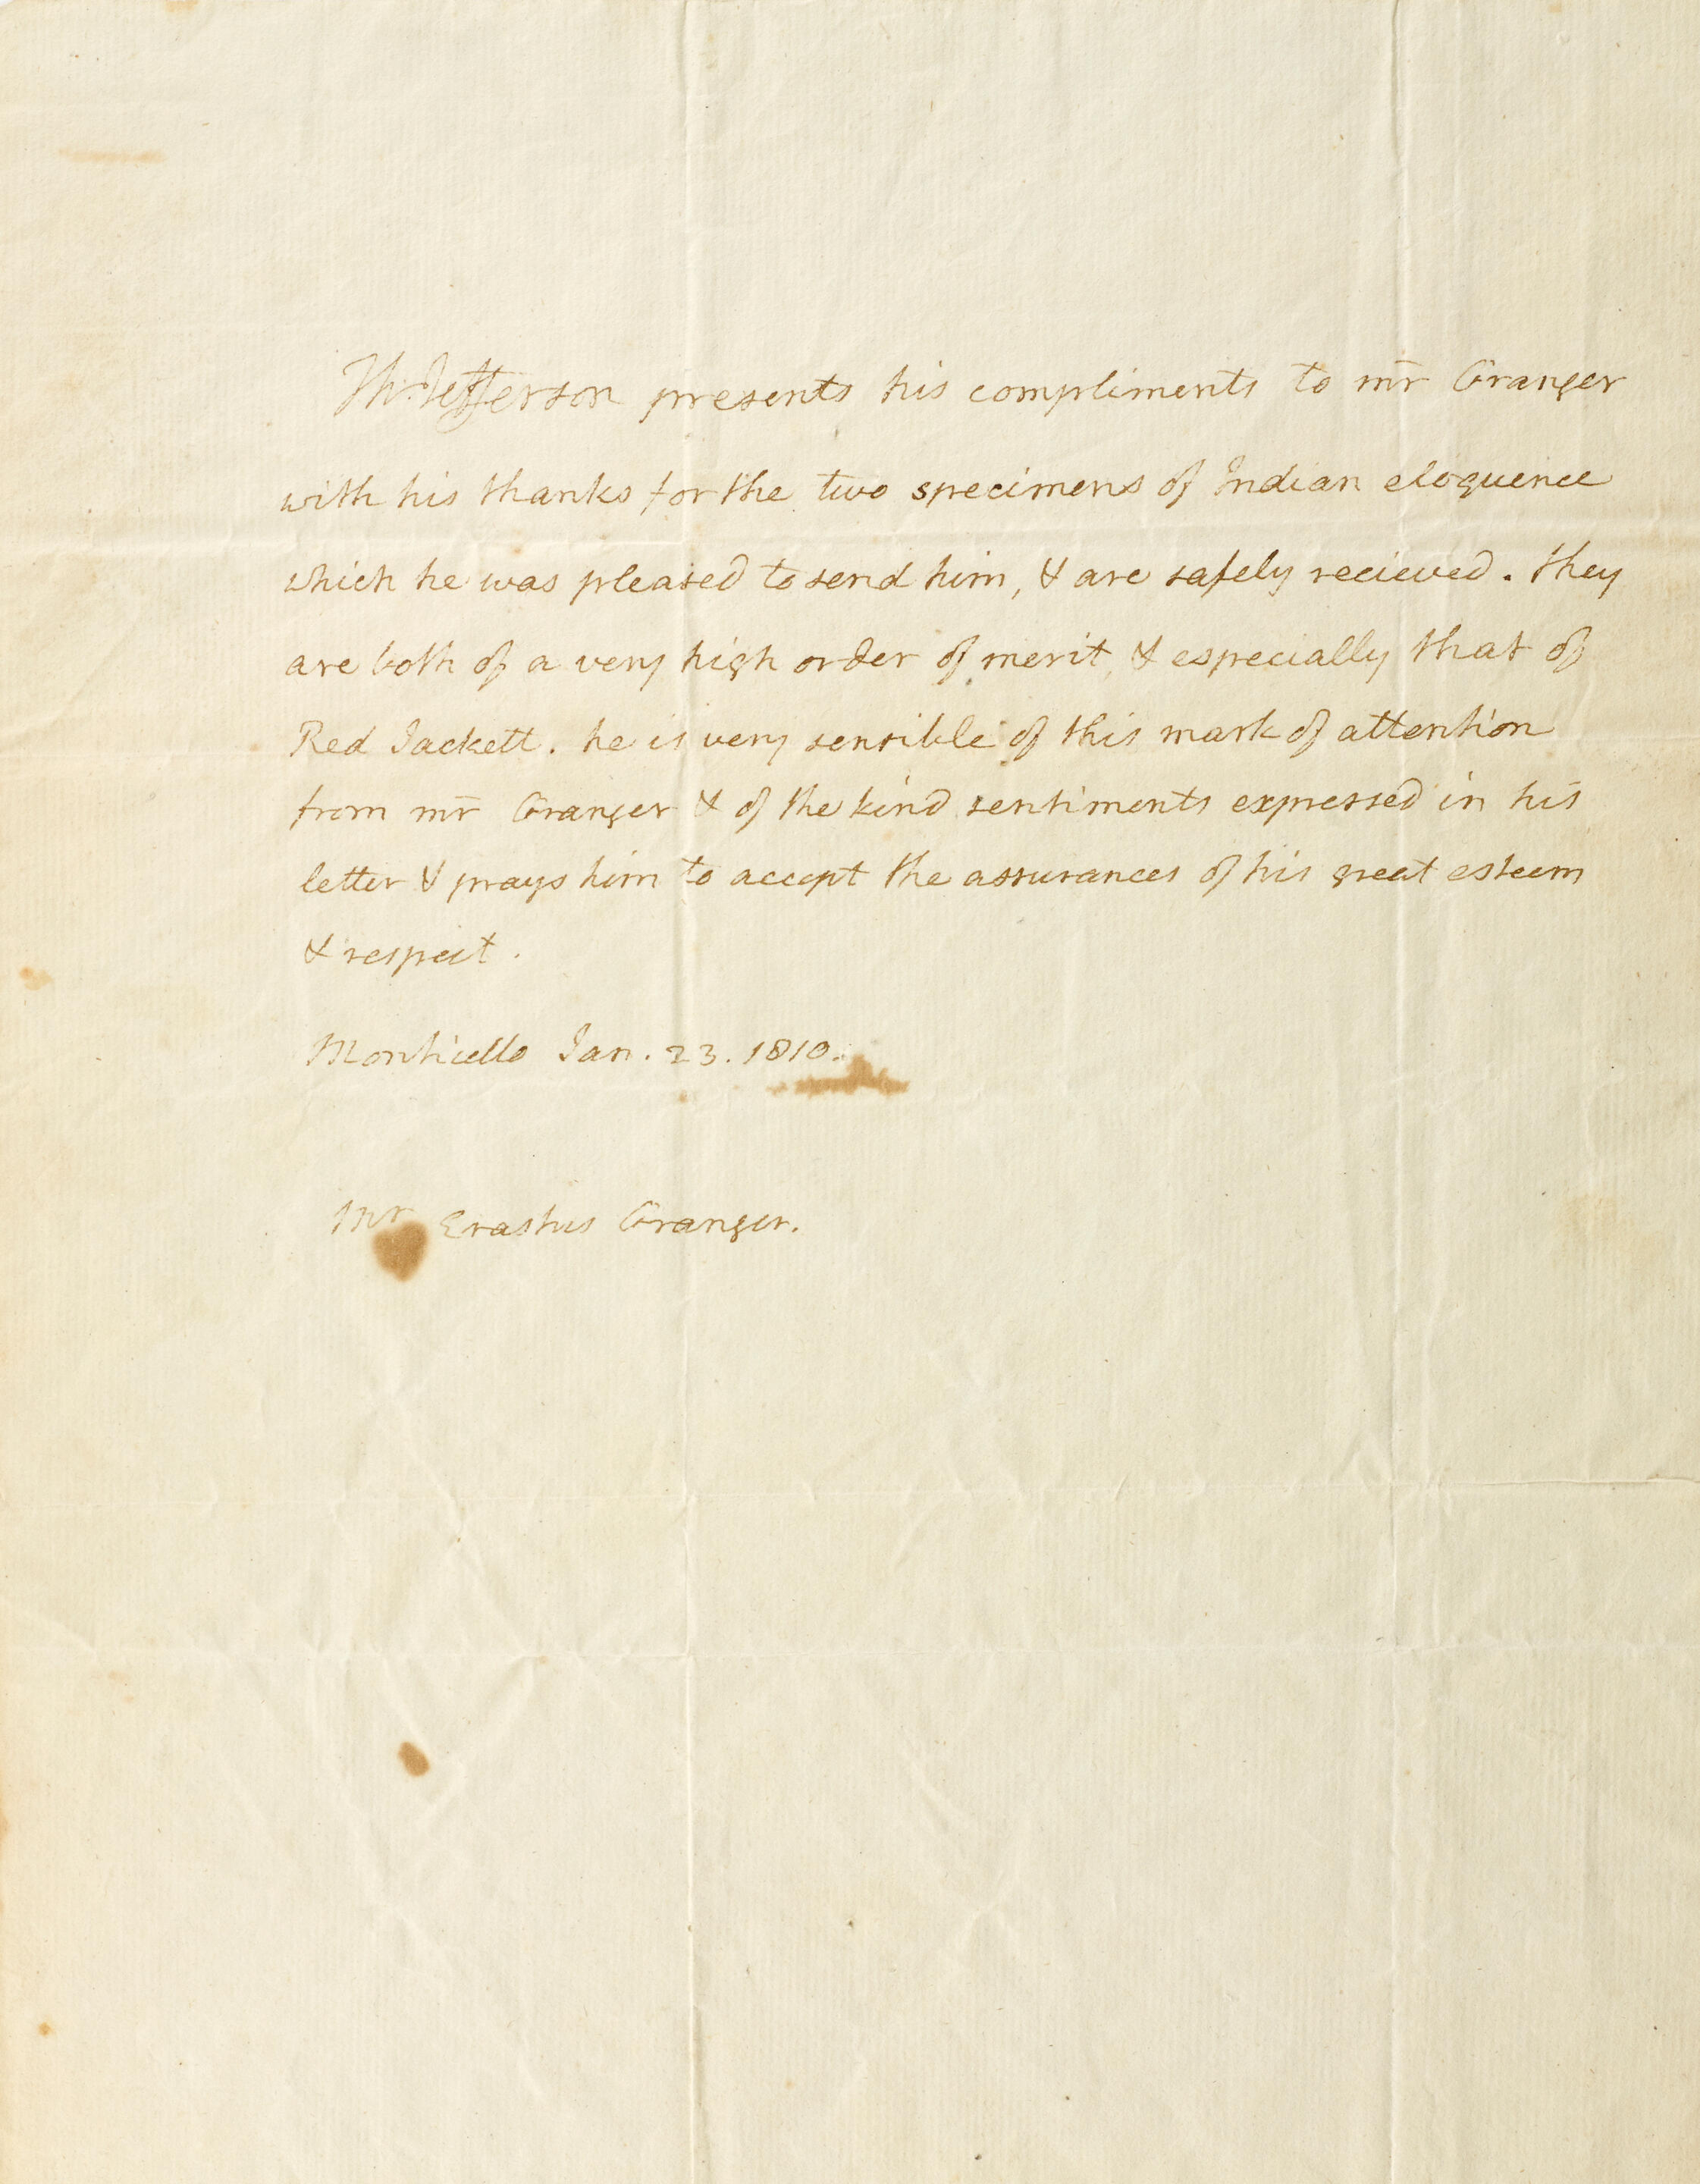 Th: Jefferson presents his compliments to mr Granger
with his thanks for the two specimens of Indian eloquence
which he was pleased to send him, & are safely recieved. they
are both of a very high order of merit, & especially that of
Red Jackett. he is very sensible of this mark of attention
from mr Granger & of the kind sentiments expressed in his
letter & prays him to accept the assurances of his great esteem
& respect.
Monticello Jan. 23. 1810.
Mr Erastus Granger.